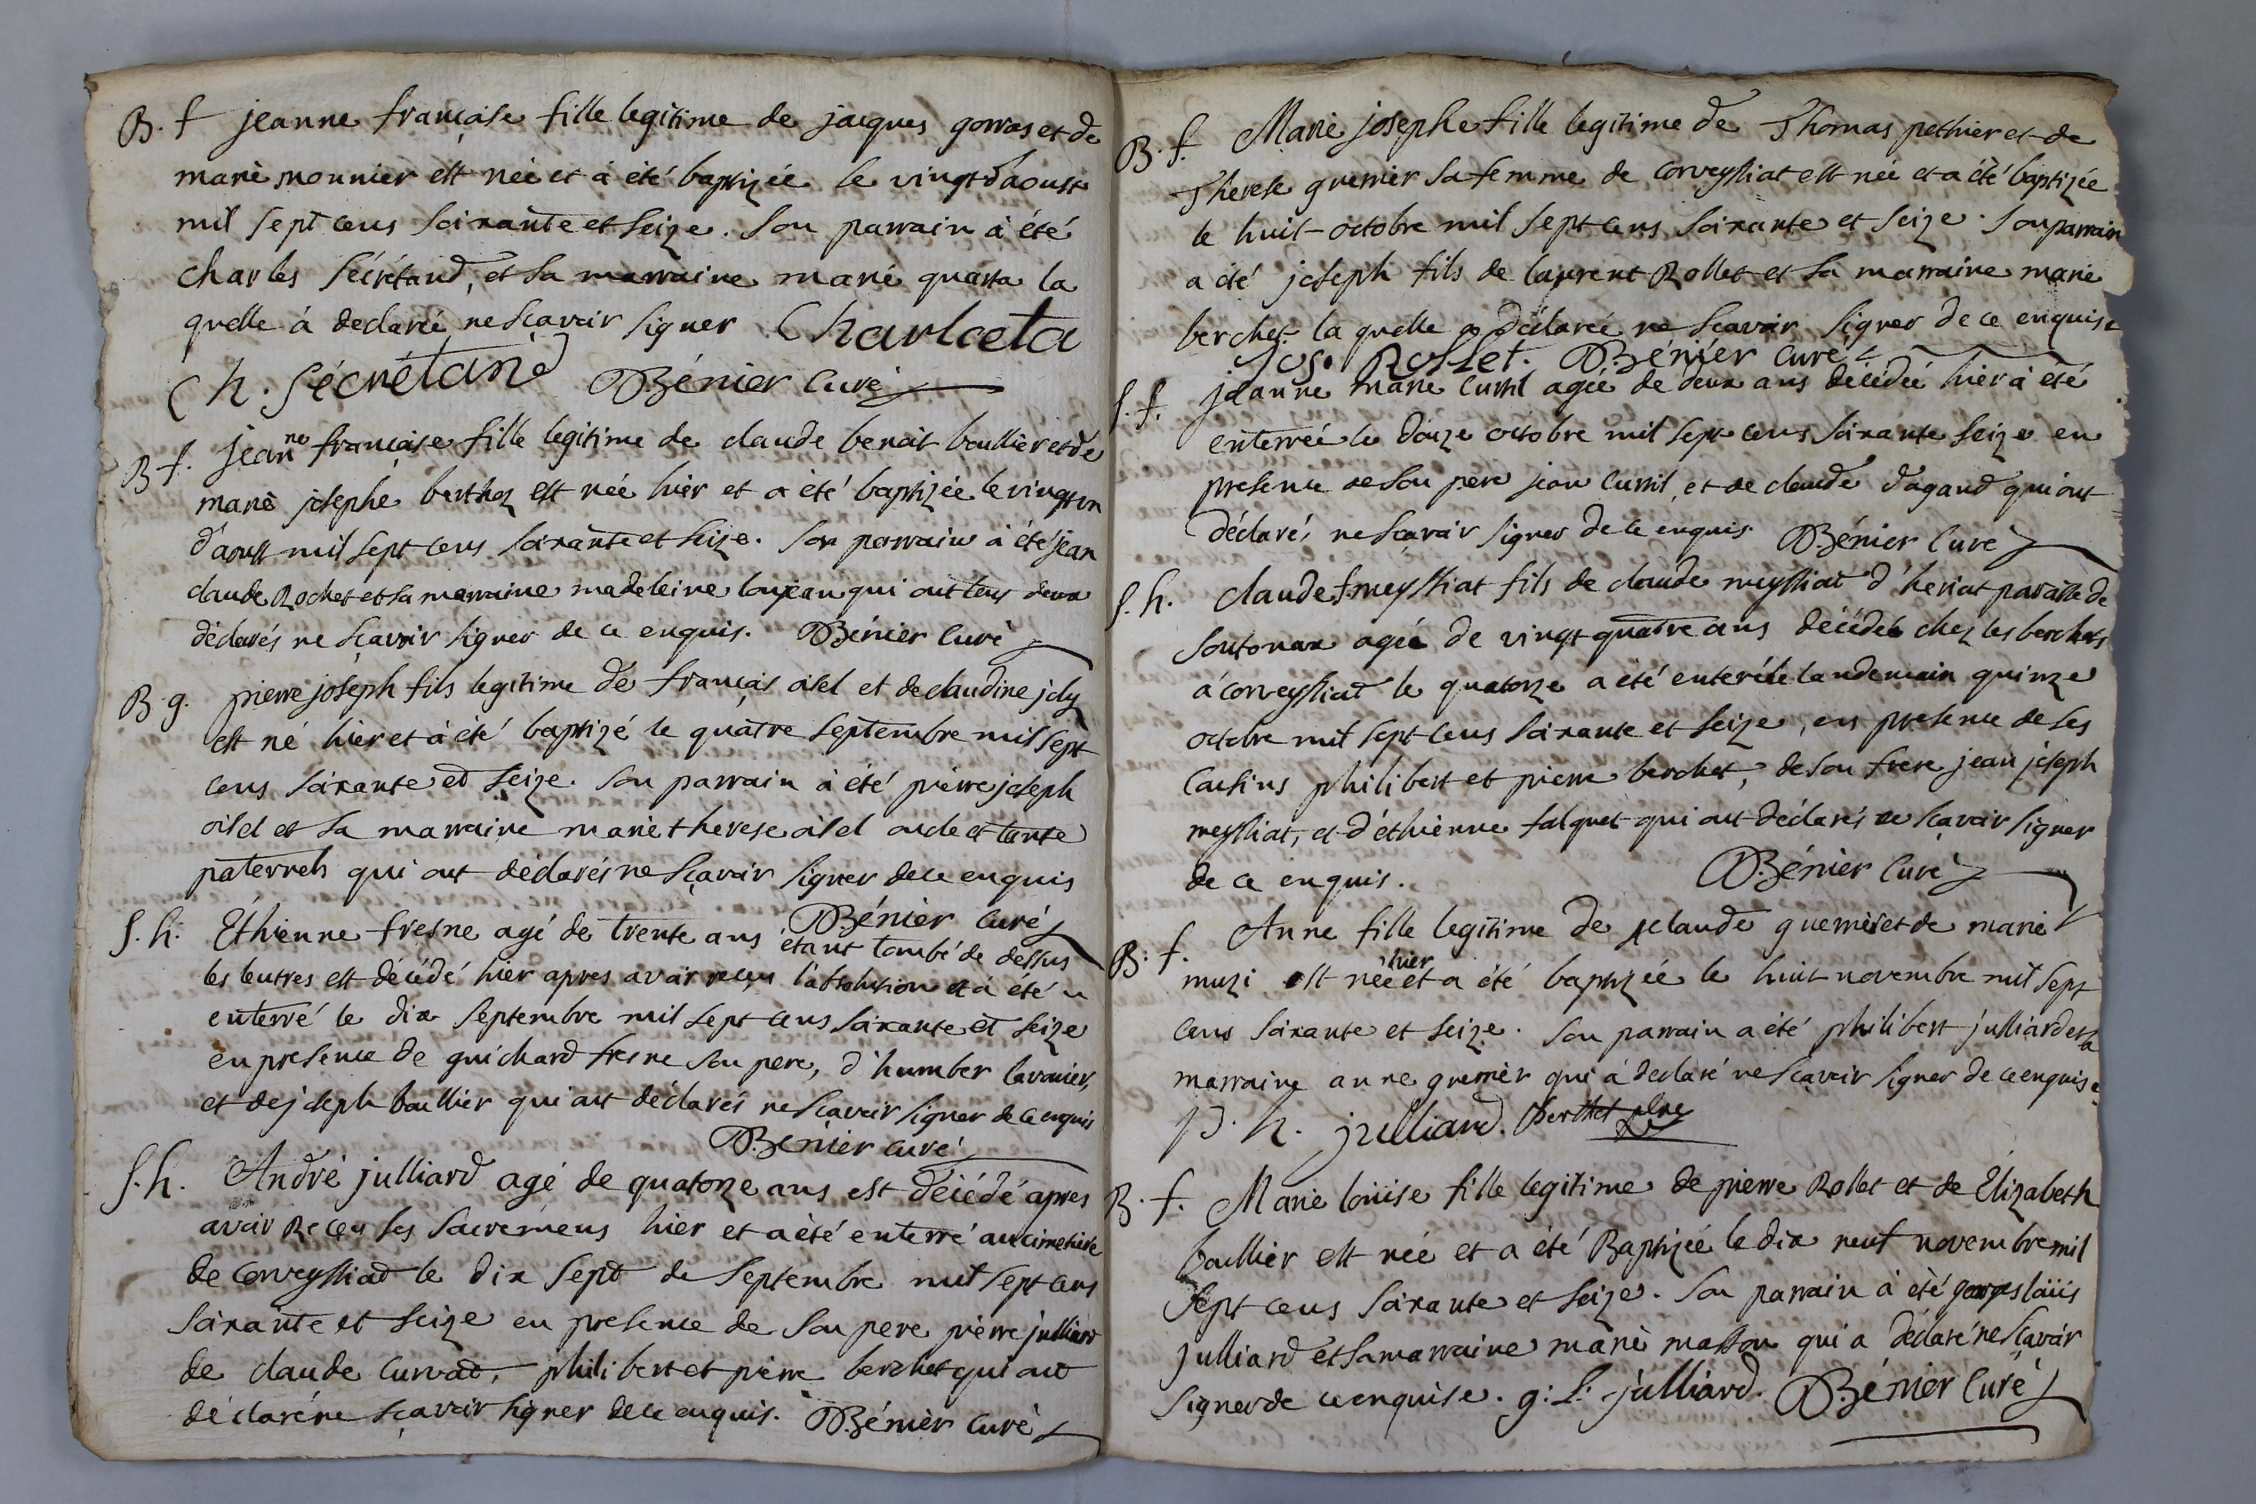 B. f jeanne francaise fille legitime de jacques gorras et de
marie monnier est née et à été baptizée le vingt d'aoust
mil sept cens soixante et seize. son parrain à été
charles sécrétand, et sa marraine marie quarta la
quelle à declaré ne scavoir signer Charlceta
Ch. sécretand Bénier curé
B f. jeanne française fille legitime de claude benoit boullier et de
marie josephe berthez est née hier et a été baptizée le vingt un
d'aoust mil sept cens soixante et seize. son parrain à été jean
claude Rochet et sa marraine madeleine loujean qui ont tous deux
déclarés ne sçavoir signer de ce enquis. Bénier curé
B. g. pierre joseph fils legitime de françois oisel et de claudine joly
est né hier et à été baptizé le quatre septembre mil sept
cens soixante et seize. son parrain à été pierre joseph
oisel et sa marraine marie therese oisel oncle et tante
paternels qui ont déclarés ne sçavoir signer de ce enquis
Bénier curé
s. h. Ethienne fresne agé de trente ans étant tombé de dessus
les leutres est décédé hier apres avoir reçeu l'absolution et à été
enterré le dix septembre mil sept cens soixante et seize
en presence de guichard fresne son pere, d'humber lavanier,
et de joseph boullier qui ont déclarés ne scavoir signer de ce enquis
Bénier curé
s. h. André julliard agé de quatorze ans est décédé apres
avoir Receu ses sacremens hier et a été enterré au cimetiere
de corveyssiat le dix sept de septembre mil sept cens
soixante et seize en presence de son pere pierre julliard
de claude curvat, philibert et pierre berchet qui ont
déclaré ne sçavoir signer de ce enquis. Bénier curé
B. f. Marie josephe fille legitime de Thomas pethier et de
Therese grenier sa femme de corveyssiat est née et a été baptizée
le huit octobre mil sept cens soixante et seize. son parrain
a été joseph fils de laurent Rollet et sa marraine marie
berchet la quelle a déclaré ne scavoir signer de ce enquise
Jos. Rollet. Bénier curé
s. f. jeanne marie curvil agée de deux ans décédée hier à été
enterrée le douze octobre mil sept cens soixante seize en
presence de son pere jean curvil, et de claude dagand qui ont
déclaré, ne sçavoir signer de ce enquis Bénier curé
s. h. claude f. meyssiat fils de claude meyssiat d'heriat paroisse de
soutonax agée de vingt quatre ans décédé chez les berchets
à corveyssiat le quatorze a été enteré le landemain quinze
octobre mil sept cens soixante et seize, en presence de ses
cousins philibert et pierre berchet, de son frere jean joseph
meyssiat, et d'éthienne falquet qui ont déclarés ne sçavoir signer
de ce enquis. Bénier curé
B. f. Anne fille legitime de claude guernier et de marie
muzi est née hier et a été baptizée le huit novembre mil sept
cens soixante et seize. son parrain a été philibert julliard et sa
marraine anne grenier qui à declaré ne sçavoir signer de ce enquise
p. h. julliard. Berthet ptre
B. f. Marie loüise fille legitime de pierre Rollet et de Elizabeth
boullier est née et a été Baptizée le dix neuf novembre mil
sept cens soixante et seize. son parrain à été george loüis
julliard et sa marraine marie masson qui a déclaré ne scavoir
signer de ce enquise. g: L: julliard. Bénier curé